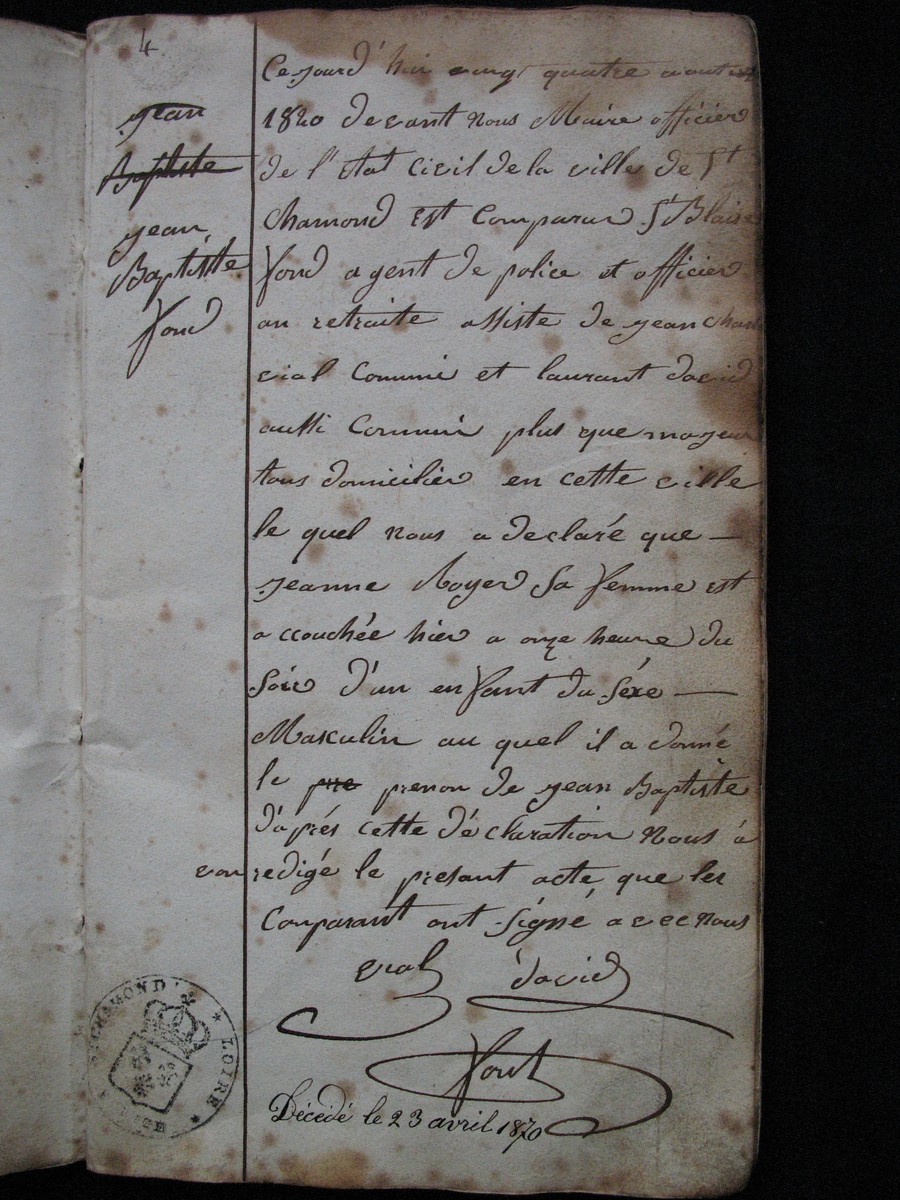 4
jean
Baptiste
jean
Baptiste
fond
Ce jourd'hui vingt quatre aout
1820 devant nous Maire officier
de l'état civil de la ville de St
Chamond est Comparu Sr Blaise
fond agent de police et officier
an retraite assiste de jean
vial Commi et laurant david
aussi Commi plus que majeur
tous domicilier en cette ville
le quel nous a declaré que —
jeanne Royer sa femme est
accouchée hier a onze heure du
soir d'un enfant du séxe —
Masculin au quel il a donné
le pre prenon de jean Baptiste
d'aprés cette déclaration nous a
von redigé le presant acte que les
Conparant ont signé avec nous
vial david
font
Décédé le 23 avril 1870
ST CHAMOND * LOIRE *